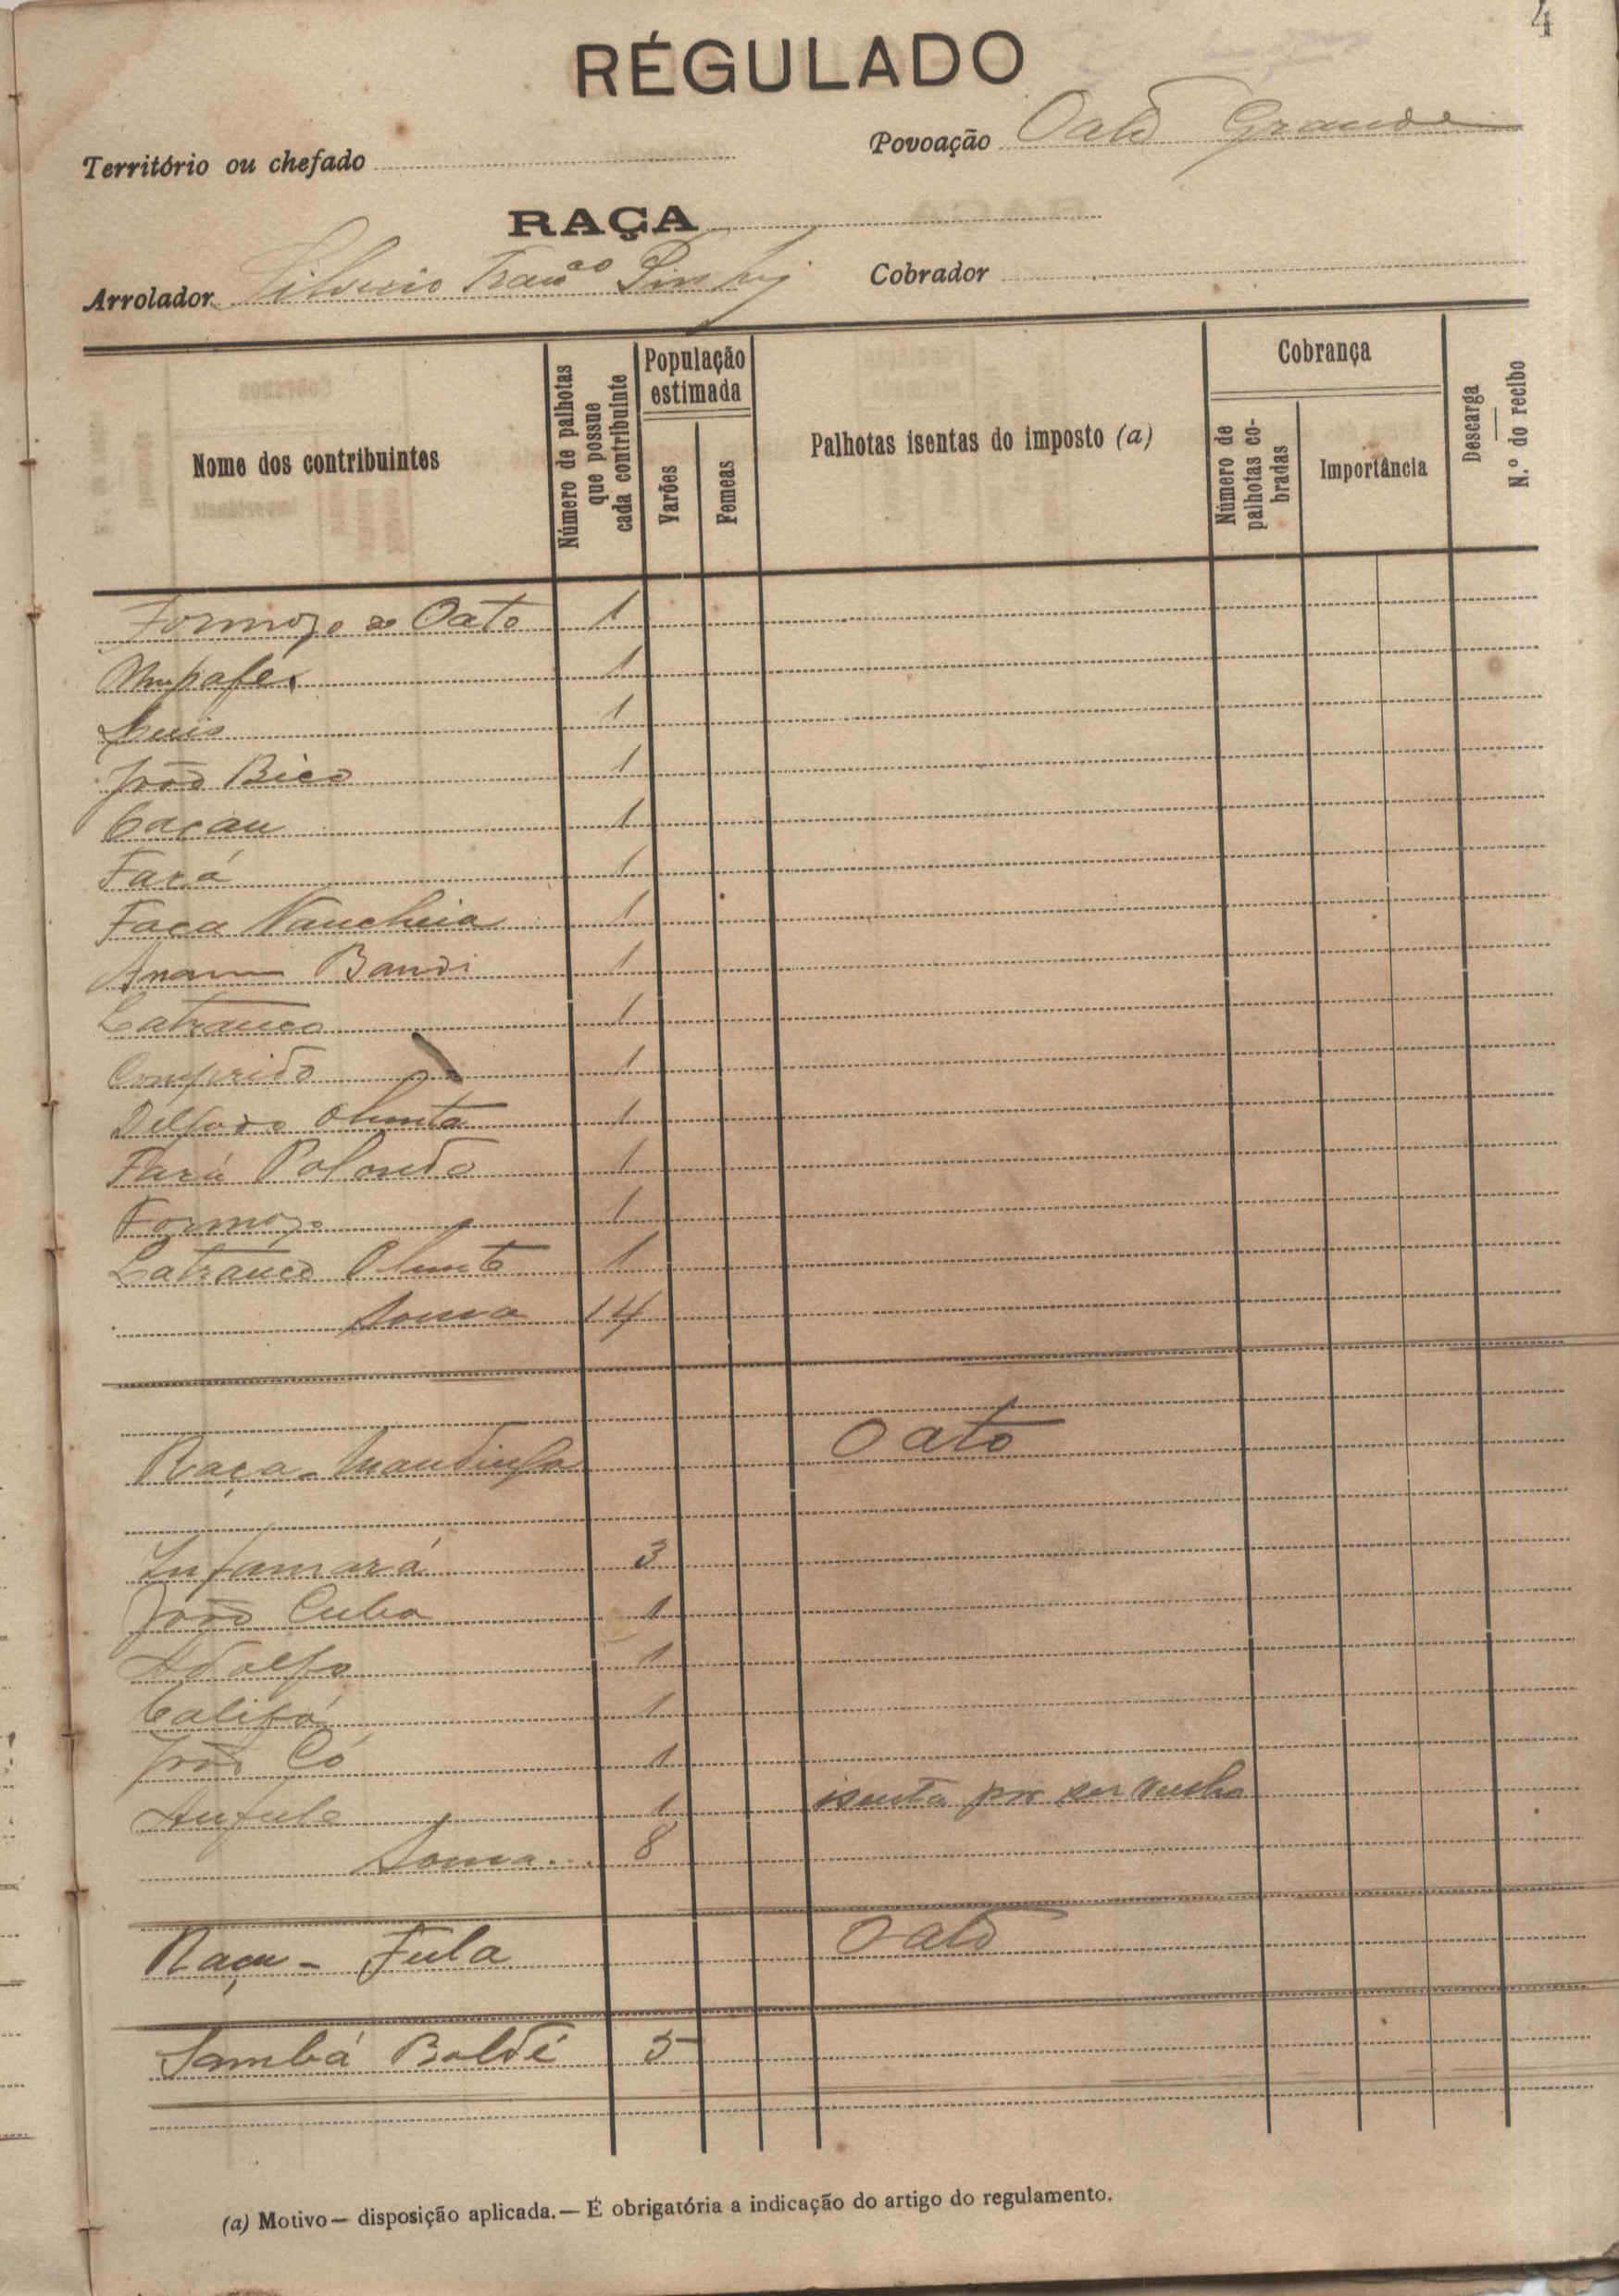 4
RÉGULADO
Território ou chefado
Povoação Oató Grande
RAÇA
Arrolador Silverio Fran.co
Cobrador
Nome dos contribuintes
Número de palhotas que possue cada contribuinte
População estimada
Varões
Femeas
Palhotas isentas do imposto (a)
Cobrança
Número de palhotas cobradas
Importância
Descarga
N.º do recibo
Formozo de Oato 1
1
Luis 1
João Bico 1
Cacau 1
Fará 1
Faca Nancheia 1
Bandi 1
Latranco 1
Comprido 1
Delgado Olunta 1
Fará Polondo 1
Formozo 1
Latranco Olunto 1
Soma 14
Raça - Mandinga Oato
Infamará 3
João Cubo 1
Adolfo 1
Califa 1
João Có 1
Anfule 1 isenta por ser velho
Soma 8
Raça - Fula Oato
Sambá Baldé 5
(a) Motivo — disposição aplicada. — É obrigatória a indicação do artigo do regulamento.